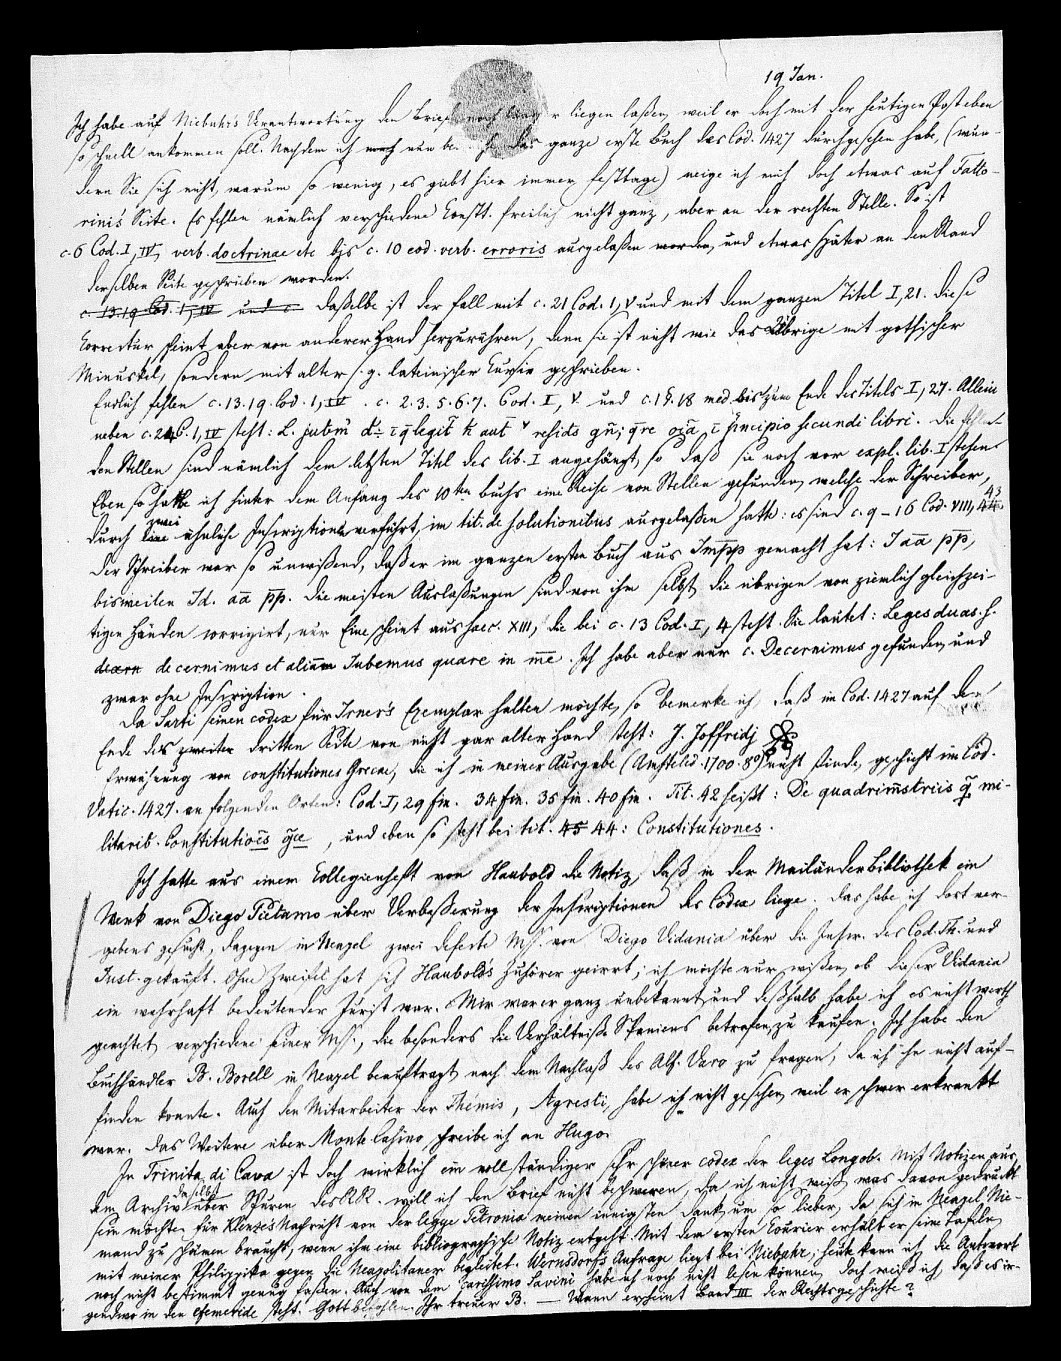 19 Jan.
Ich habe auf Niebuhrs Verantwortung den Brief noch länger liegen laßen, weil er doch mit der heutigen Post eben
so schnell ankommen soll. Nachdem ich noch nun das ganze erste Buch des Cod. 1427 durchgesehen habe, (wun-
dern Sie sich nicht, warum so wenig, es giebt hier immer Festtage) neige ich mich doch etwas auf Fatto-
rinis Seite. Es fehlen nämlich verschiedene Constt. freilich nicht ganz, aber an der rechten Stelle. So ist
c. 6 Cod. I, IV, verb. doctrinae etc bis c. 10 eod. verb. erroris ausgelaßen worden, und etwas später an den Rand
derselben Seite geschrieben worden.
c. 13. 19 Cod. 1, IV und c. Daßelbe ist der Fall mit c. 21 Cod. 1, V und mit dem ganzen Titel I, 21. Diese
Correctur scheint aber von anderer Hand herzurühren, denn sie ist nicht wie das Übrige mit gothischer
Minuskel, sondern mit alter s. g. lateinischer Cursiv geschrieben.
Endlich fehlen c. 13. 19. Cod. 1, IV. c. 2. 3. 5. 6. 7. Cod. I, V und c. 1 §. 18 med. bis zum Ende des Titels I, 27. Allein
neben c. 24 C. 1, IV steht: L. jubem̄ principio secundi libri. Die fehlen-
den Stellen sind nämlich dem letzten Titel des lib. I angehängt, so daß sie noch vor expl. lib. I stehen.
Eben so hatte ich hinter dem Anfang des 10ten Buchs eine Reihe von Stellen gefunden, welche der Schreiber,
durch eine zwei ähnliche Inscriptionen verführt, im tit. de solutionibus ausgelaßen hatte: es sind c. 9 – 16 Cod. VIII, 43
Der Schreiber war so unwißend, daß er im ganzen ersten Buch aus Impp gemacht hat: I aa pp,
bisweilen Id. aa pp. Die meisten Auslaßungen sind von ihm selbst, die übrigen von ziemlich gleichzei-
tigen Händen corrigirt, nur Eine scheint aus saec. XIII, die bei c. 13 Cod. I, 4 steht. Sie lautet: Leges duas. s.
decernimus et aliam Jubemus quare in me. Ich habe aber nur c. Decernimus gefunden, und
zwar ohne Inscription.
Da Sarti seinen codex für Irners Exemplar halten möchte, so bemerke ich, daß im Cod. 1427 auf dem
Ende des zweiter dritten Seite von nicht gar alter Hand steht: J. Joffridj
Erwähnung von constitutiones Grecae, die ich in meiner Ausgabe (Amstelod. 1700. 8º) nicht finde, geschieht im Cod.
Vatic. 1427. an folgenden Orten: Cod. I, 29 fin. 34 fin. 35 fin. 40 fin. Tit. 42 heißt: De quadrimstriis q̄ mi-
litarib. Constitutioēs gr̄ce, und eben so steht bei tit. 45 44: Constitutiones.
Ich hatte aus einem Collegienheft von Haubold die Notiz, daß in der Mailänder Bibliothek ein
Werk von Diego Pictamo über Verbeßerung der Inscriptionen des Codex liege. Das habe ich dort ver-
gebens gesucht, dagegen in Neapel zwei defecte Mss. von Diego Vidania über die Inscr. des Cod. Th. und
Just. gekauft. Ohne Zweifel hat sich Haubolds Zuhörer geirrt; ich möchte nur wißen, ob dieser Vidania
ein wahrhaft bedeutender Jurist war. Mir war er ganz unbekannt, und deßhalb habe ich es nicht werth
geachtet verschiedene seiner Mss., die besonders die Verhältniße Spaniens betrafen, zu kaufen. Ich habe den
Buchhändler B. Borell in Neapel beauftragt, nach dem Nachlaß des Alf. Vara zu fragen, da ich ihn nicht auf-
finden konnte. Auch den Mitarbeiter der Thémis, Agresti, habe ich nicht gesehen, weil er schwer erkrankt
war. Das Weitere über Monte Casino schreibe ich an Hugo.
In Trinita di Cava ist doch wirklich ein vollständiger sehr schöner codex der leges Longob. Mit Notizen aus
dem Archiv daselbst über Spuren des R. R. will ich den Brief nicht beschweren, da ich nicht weiß, was davon gedruckt
sein möchte. Für Klenzes Nachricht von der legge Petronia meinen innigsten Dank, um so lieber, da sich in Neapel Nie-
mand zu schämen braucht, wenn ihm eine bibliographische Notiz entgeht. Mit dem ersten Courier erhält er seine Tafeln,
mit meiner Philippika gegen die Neapolitaner begleitet. Wernsdorfs Anfrage liegt bei Niebuhr; heute kann ich die Antwort
noch nicht bestimmt genug faßen. Auch von dem carissimo Savini habe ich noch nicht lesen können, doch weiß ich, daß es ir-
gendwo in den Efemeride steht. Gott befohlen. Ihr treuer B. — Wann erscheint Band III der Rechtsgeschichte?